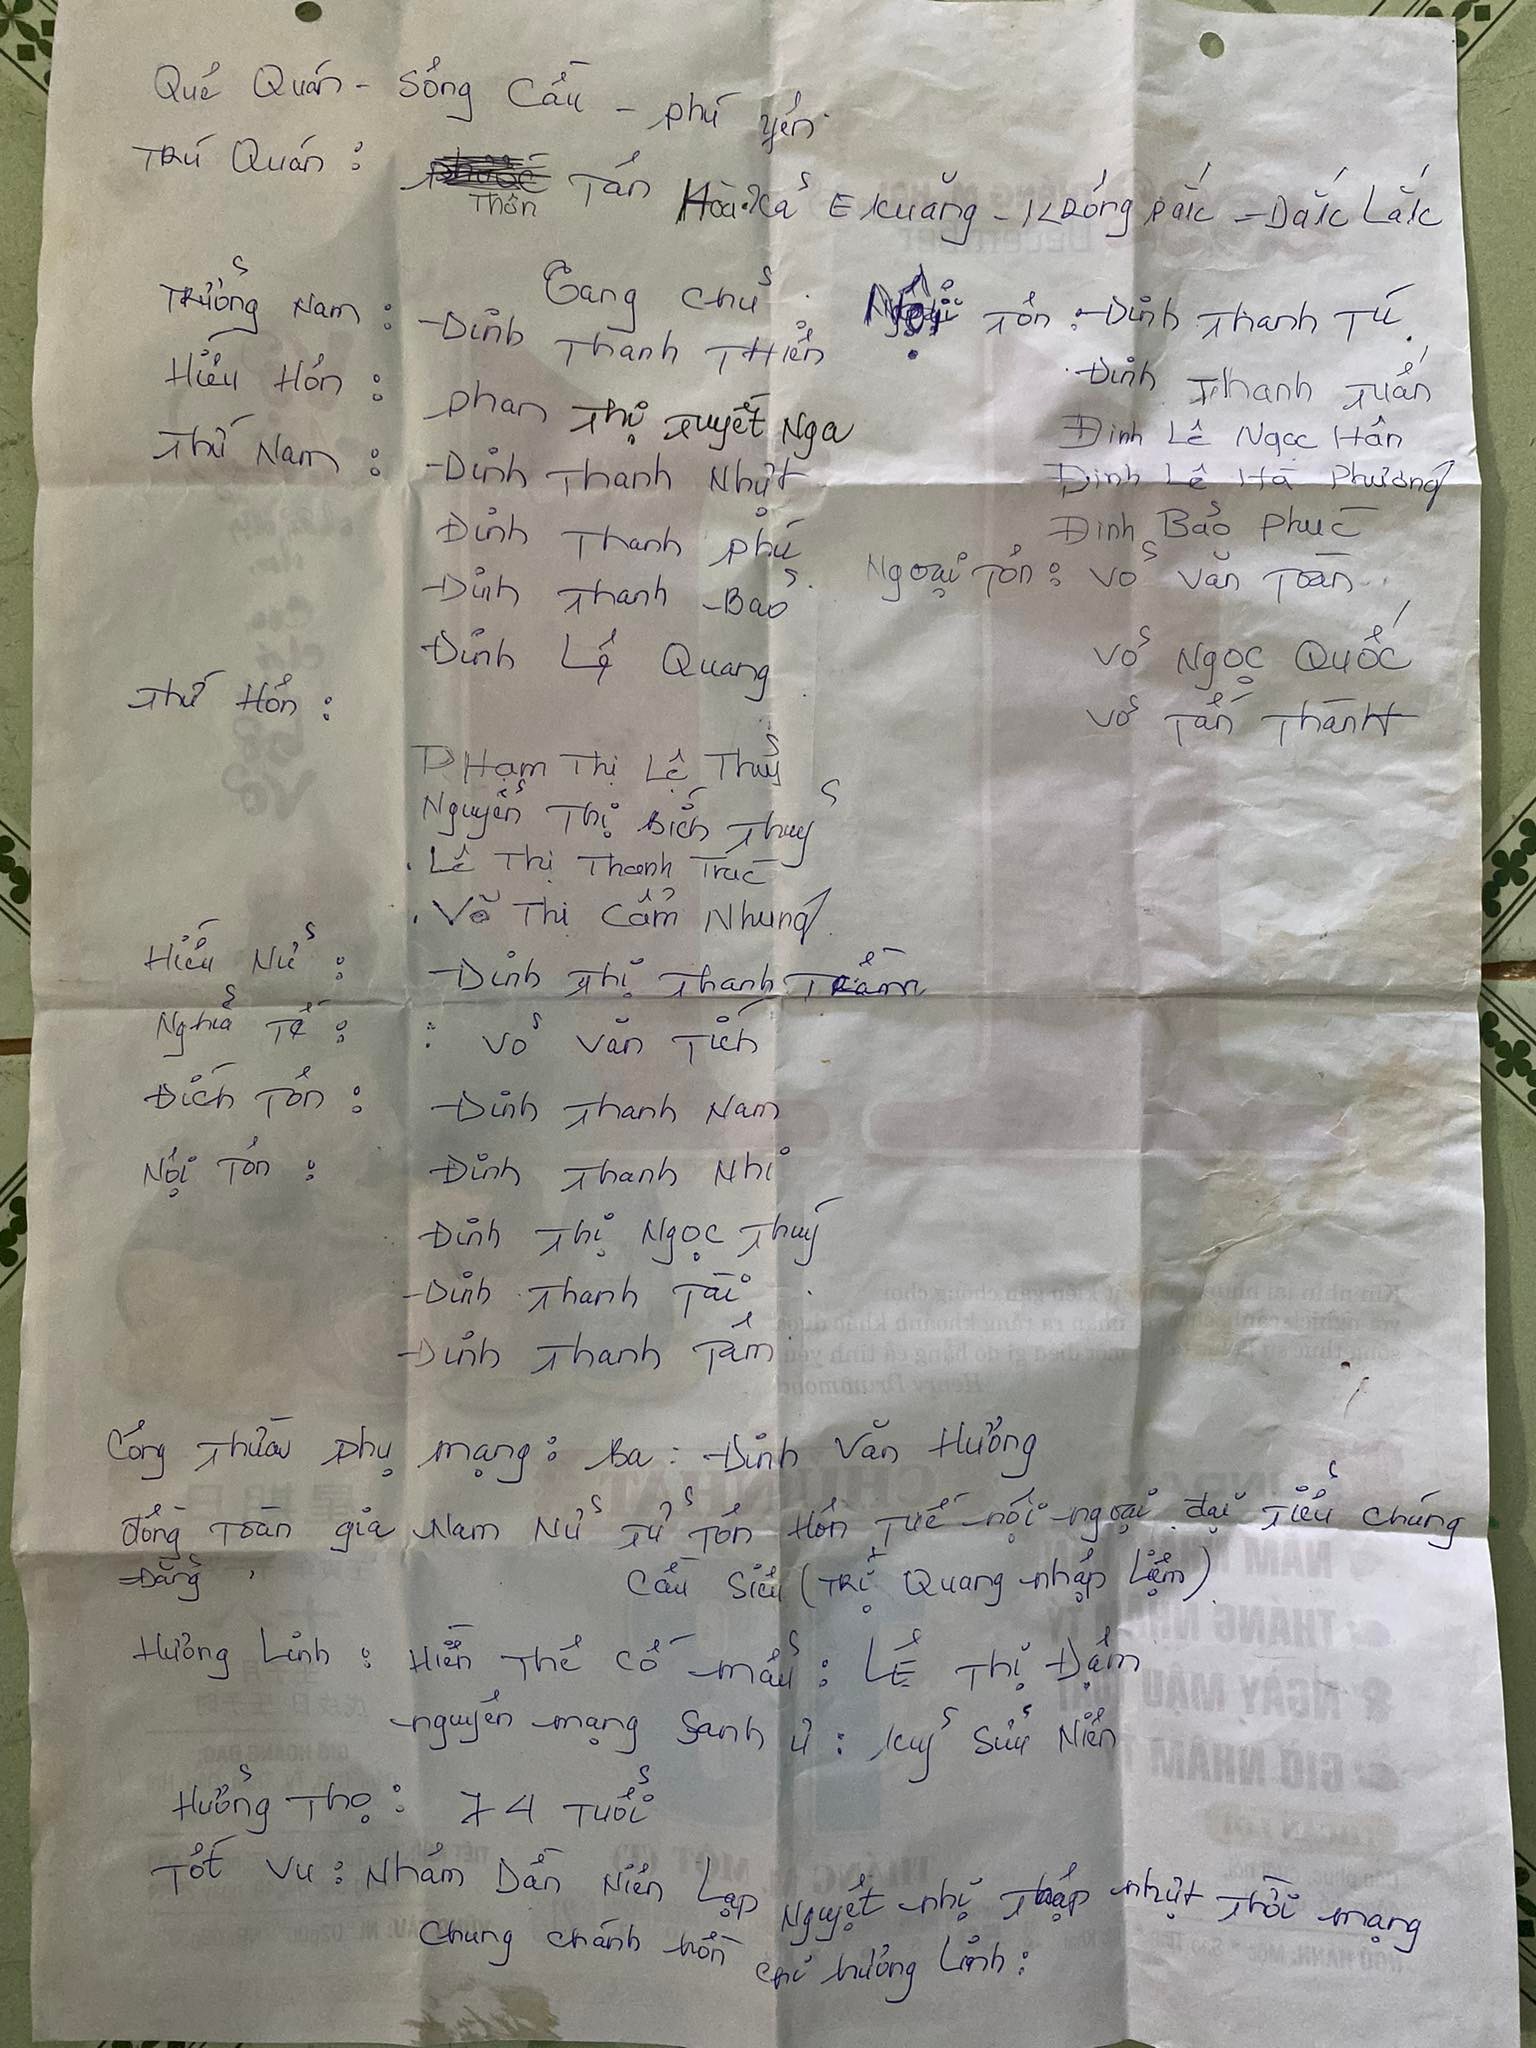 Quê Quán - Sông Cầu - phú yên
Trú Quán : Thôn Tân Hòa. Xả EKuăng - KRông Păk - Đắk Lắk
Tang chủ
Trưởng Nam : Đinh Thanh Thiên
Hiếu Hôn : phan Thị Tuyết Nga
Thứ Nam : Đinh Thanh Nhựt
Đinh Thanh phú
Đinh Thanh Bảo
Đinh Lê Quang
Thứ Hôn :
Phạm Thị Lệ Thủy
Nguyễn Thị Bích Thuỷ
Lê Thị Thanh Trúc
Võ Thị Cẩm Nhung
Hiếu Nử : Đinh Thị Thanh Trầm
Nghỉa Tế : : Vỏ Văn Tích
Đích Tôn : Đinh Thanh Nam
Nội Tôn : Đinh Thanh Nhi
Đinh Thị Ngọc Thuý
Đinh Thanh Tài
Đinh Thanh Tâm
Nội Tôn : Đinh Thanh Tú
Đinh Thanh Tuấn
Đinh Lê Ngọc Hân
Đinh Lê Hà Phương
Đinh Bảo Phúc
Ngoại Tôn : Vỏ Văn Toàn
Vỏ Ngọc Quốc
Vỏ Tấn Thành
Công Thừa phụ mạng : Ba : Đinh Văn Hưởng
đồng Toàn gia Nam Nử Tử Tôn Hôn Tuế nội ngoại đại Tiểu chúng
Đẳng
Cầu Siêu (Trị Quang nhập Liệm)
Hương Linh : Hiền Thê Cố mẩu : Lê Thị Đậm
nguyên mạng Sanh ư : Kuỷ Sửu Niên
Hưởng Thọ : 74 Tuổi
Tốt Vu : Nhâm Dần Niên Lạp Nguyệt nhị Thập nhựt Thời mạng
Chung chánh hồn chi hương Linh :